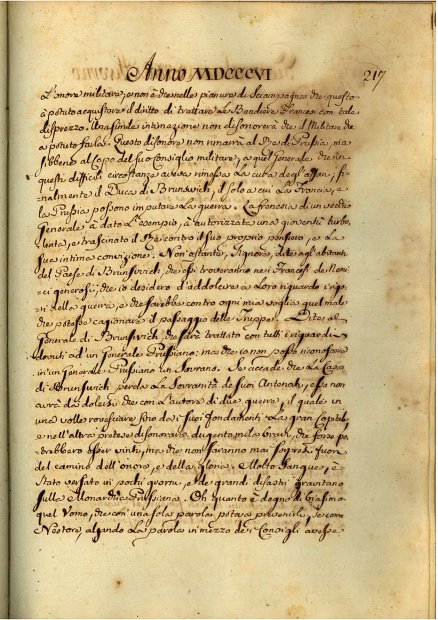 Anno MDCCCVI
217
L'onore militare, e non è che nelle pianure di Sciampagna che questo
à potuto acquistare il diritto di trattare le Bandiere Francesi con tale
disprezzo. Una simile intimazione non disonorerà che il Militare che
à potuto farla. Questo disonore non rimarrà al Re di Prussia, ma
sibbene al Capo del suo Consiglio militare, a quel Generale che in
questi difficili circostanze aveva rimessa la cura degl'affari, fi-
nalmente il Duca di Brunswich, il solo a cui la Francia, e
la Prussia possono imputare la guerra. La frenesia di un vecchio
Generale à dato l'esempio, à autorizzata una gioventù turbo-
lenta, e trascinato il Re contro il suo proprio pensiero, e la
sua intima convizione. Non ostante, Signore, dite agl'abitanti
del Paese di Brunswich, che essi troveranno nei Francesi de' Nemi-
ci generosi, che io desidero d'addolcire a loro riguardo i rigo-
ri della guerra, e che sarebbe contro ogni mia voglia quel male
che potesse cagionare il passaggio delle Truppe. Dite al
Generale di Brunswich, che sarà trattato con tutti i riguardi
dovuti ad un Generale Prussiano: ma che io non posso riconoscere
in un Generale Prussiano un Sovrano. Se accade che la Casa
di Brunswich perda la Sovranità de' suoi Antenati, essa non
avrà da dolersi che con l'autore di due guerre, il quale in
una volle rovesciare sino da' suoi fondamenti la gran Capitale,
e nell'altra pretese disonorare dugento mila bravi, che forse po-
trebbero esser vinti, ma che non saranno mai sorpresi fuori
del camino dell'onore, e della gloria. Molto Sangue, è
stato versato in pochi giorni, e de' grandi disastri gravitano
sulla Monarchia Prussiana. Oh quanto è degno di biasimo
quel Uomo, che con una sola parola poteva prevenirli, se come
Nestore, alzando la parola in mezzo de' Consigli avesse